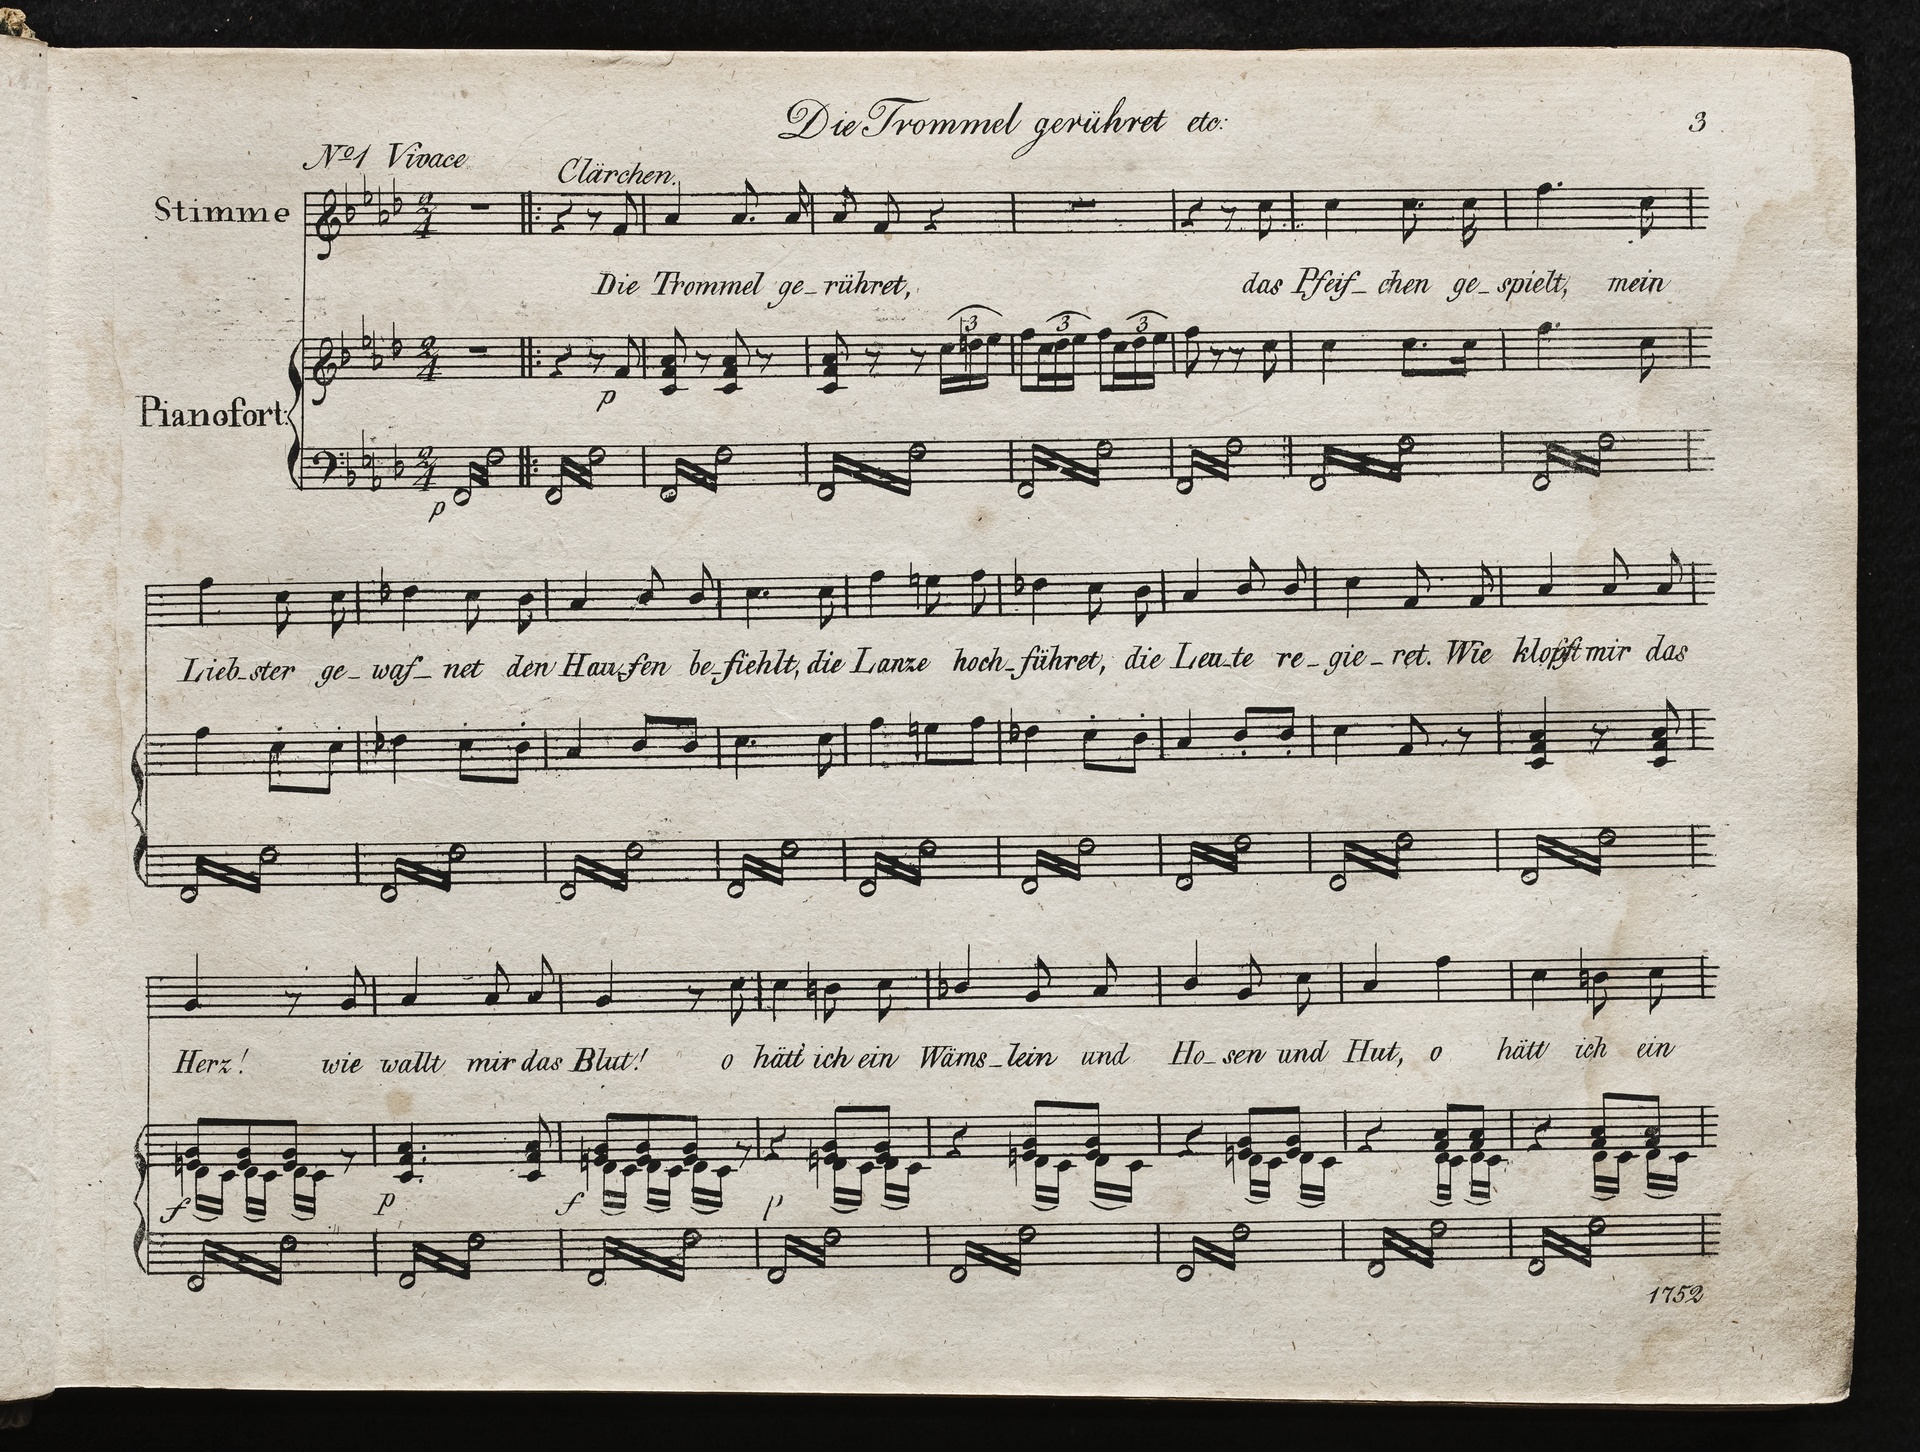 Die Trommel gerühret etc:
3
No1 Vivace
Clärchen.
Stimme
Die Trommel ge_rühret, das Pfeif_chen ge_spielt, mein
3 3 3
p
Pianofort:
p
Lieb_ster ge_waf_net den Hau_fen be_fiehlt, die Lanze hoch_führet, die Leu_te re_gie_ret. Wie klopft mir das
Herz! wie wallt mir das Blut! o hätt ich ein Wäms_lein und Ho_sen und Hut, o hätt ich ein
f p f p
1752